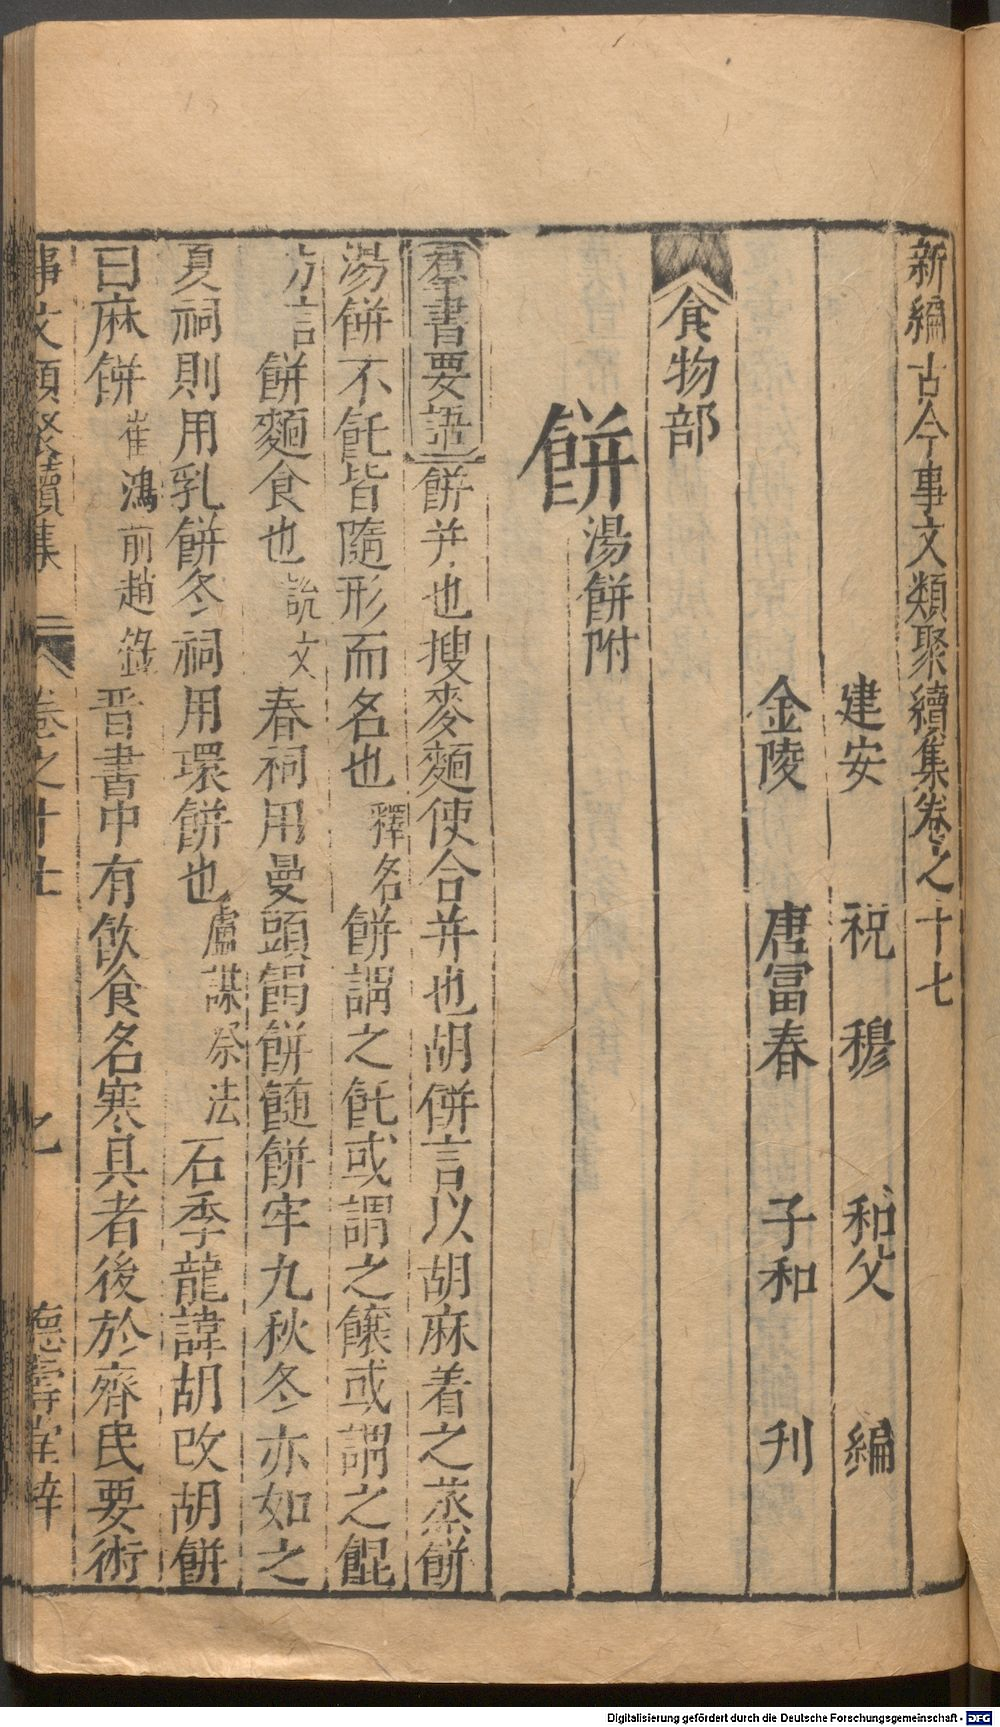 新編古今事文類聚續集卷之十七
建安 祝穆 和父 編
金陵 唐富春 子和 刊
食物部
餅 湯餅附
羣書要語 餅并也搜麥麵使合并也胡餅言以胡麻着之蒸餅
湯餅不飥皆隨形而名也 釋名 餅謂之飥或謂之餦或謂之餛
方言 餅麵食也 說文 春祠用曼頭餳餅䭉餅牢九秋冬亦如之
夏祠則用乳餅冬祠用環餅也 盧諶祭法 石季龍諱胡改胡餅
曰麻餅 崔鴻前趙錄 晋書中有飲食名寒具者後於齊民要術
事文類聚續集 卷之十七 乙 德壽堂梓
Digitalisierung gefördert durch die Deutsche Forschungsgemeinschaft - DFG